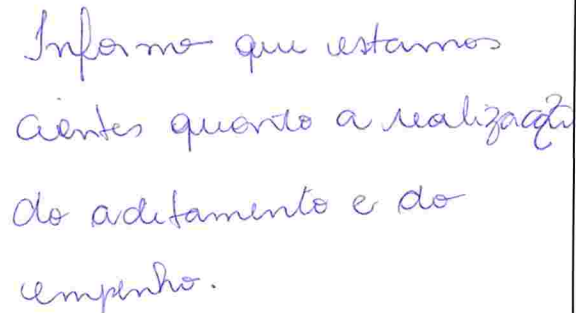 Informo que estamos
cientes quanto a realização
do aditamento e do
empenho.